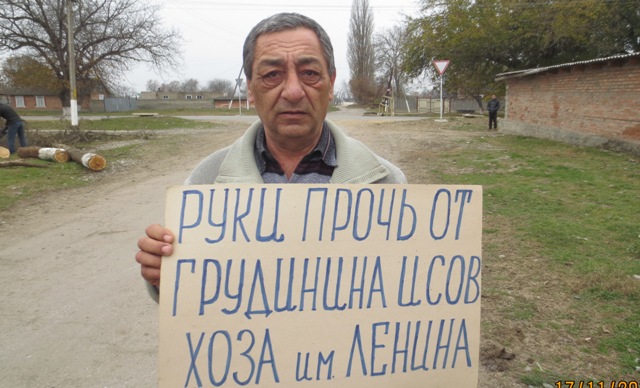 РУКИ ПРОЧЬ ОТ
ГРУДИНИНА И СОВ
ХОЗА им. ЛЕНИНА